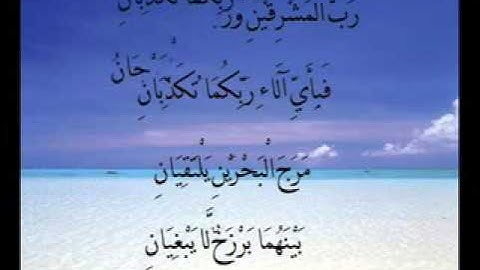 رَبُّ الْمَشْرِقَيْنِ وَرَ رَبِّكُمَا تُكَذِّبَانِ
فَبِأَيِّ آلَاءِ رَبِّكُمَا تُكَذِّبَانِ جَانُ
مَرَجَ الْبَحْرَيْنِ يَلْتَقِيَانِ
بَيْنَهُمَا بَرْزَخٌ لَّا يَبْغِيَانِ